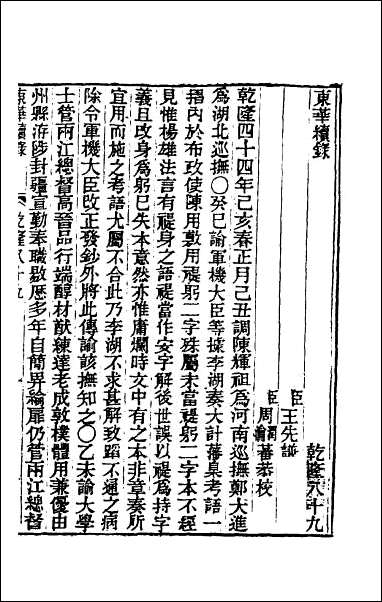 東華續錄
乾隆八十九
臣王先謙
臣周潤蕃恭校
乾隆四十四年己亥春正月己丑調陳輝祖為河南巡撫鄭大進
為湖北巡撫○癸巳諭軍機大臣等據李湖奏大計藩臬考語一
摺內於布政使陳用敷用禔躬二字殊屬未當禔躬二字本不經
見惟楊雄法言有禔身之語禔當作安字解後世誤以禔為持字
義且改身為躬已失本意然亦惟庸爛時文中有之本非章奏所
宜用而施之考語尤屬不合此乃李湖不求甚解致蹈不通之病
除令軍機大臣改正發鈔外將此傳諭該撫知之○乙未諭大學
士管兩江總督高晉品行端醇材猷練達老成敦樸體用兼優由
州縣洊陟封疆宣勤奉職敭歷多年自簡畀綸扉仍管兩江總督
東華續錄
乾隆八十九
一